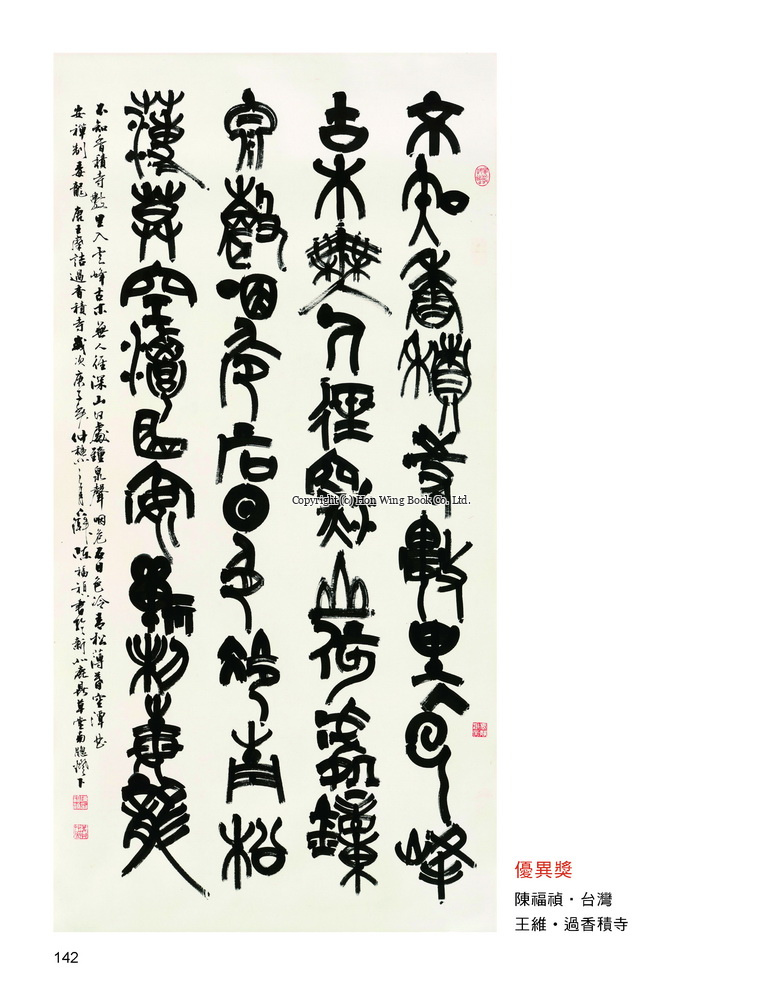 不知香積寺數里入云峰
古木無人徑深山何處鐘
泉聲咽危石日色冷青松
薄暮空潭曲安禪制毒龍
不知香積寺數里入云峰古木無人徑深山何處鐘泉聲咽危石日色冷青松薄暮空潭曲
安禪制毒龍 唐王摩詰過香積寺歲次庚子年仲秋之月 陳福禎書於新北鹿草堂南窗燈下
Copyright (c) Hon Wing Book Co. Ltd.
優異獎
陳福禎・台灣
王維・過香積寺
142